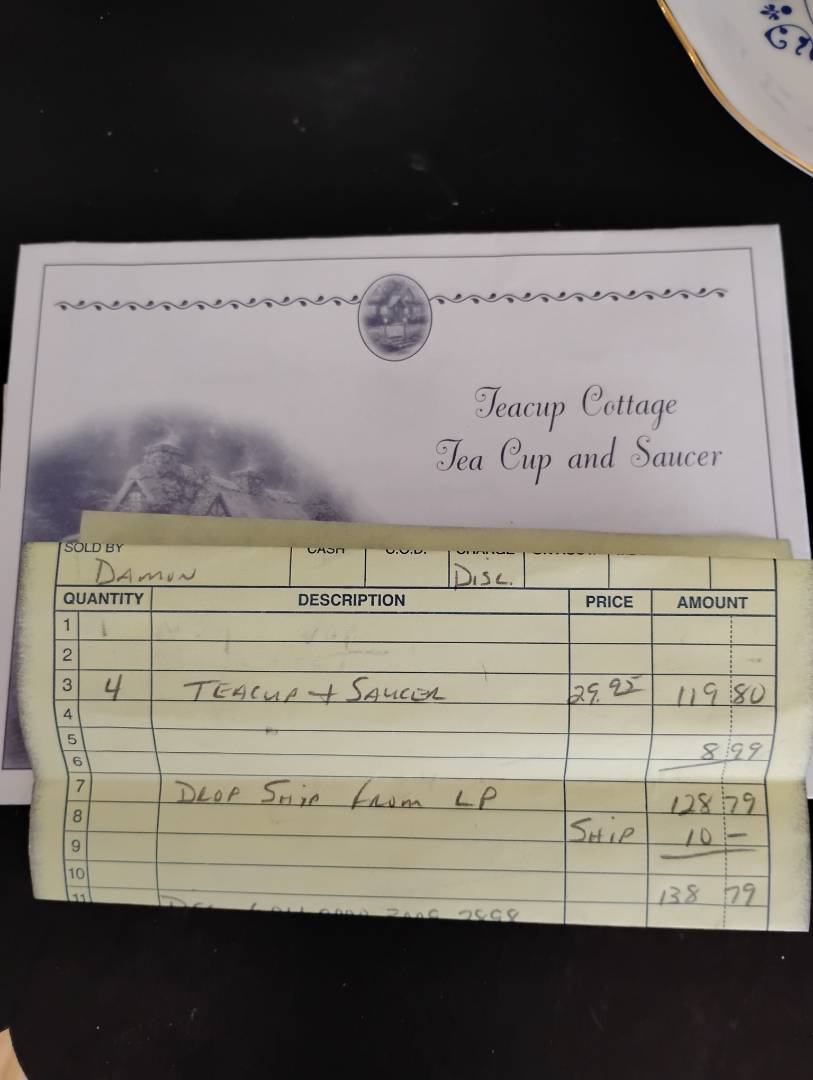 Teacup Cottage
Tea Cup and Saucer
SOLD BY CASH C.O.D. CHARGE
DAMON DISC.
QUANTITY DESCRIPTION PRICE AMOUNT
1
2
3 4 TEACUP + SAUCER 29.95 119 80
4
5 8 99
6
7 DROP SHIP FROM LP 128 79
8 SHIP 10 -
9
10 138 79
11